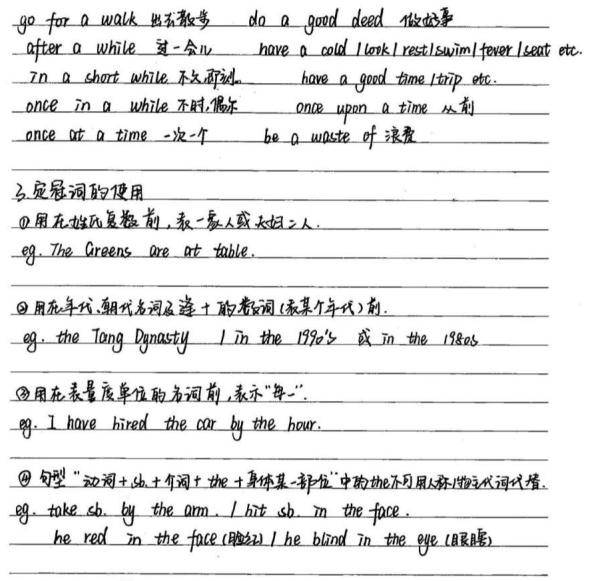 go for a walk 出去散步 do a good deed 做好事
after a while 过一会儿 have a cold / look / rest / swim / fever / seat etc.
in a short while 不久,即刻。 have a good time / trip etc.
once in a while 不时,偶尔 once upon a time 从前
once at a time 一次一个 be a waste of 浪费
3.定冠词的使用
①用在姓氏复数前,表一家人或夫妇二人.
eg. The Greens are at table.
②用在年代、朝代名词及逢十的数词(表某个年代)前.
eg. the Tang Dynasty / in the 1990's 或 in the 1980s
③用在表量度单位的名词前,表示“每一”.
eg. I have hired the car by the hour.
④句型“动词+sb.+介词+the+身体某一部位”中的the不可用人称物主代词代替.
eg. take sb. by the arm. / hit sb. in the face.
he red in the face (脸红) / he blind in the eye (眼瞎)